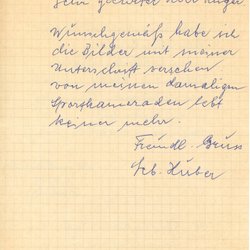 Sehr geehrter Herr Unger
Wunschgemäß habe ich
die Bilder mit meiner
Unterschrift versehen
von meinen damaligen
Sportkameraden lebt
keiner mehr.
Freundl. Gruss
Seb. Huber